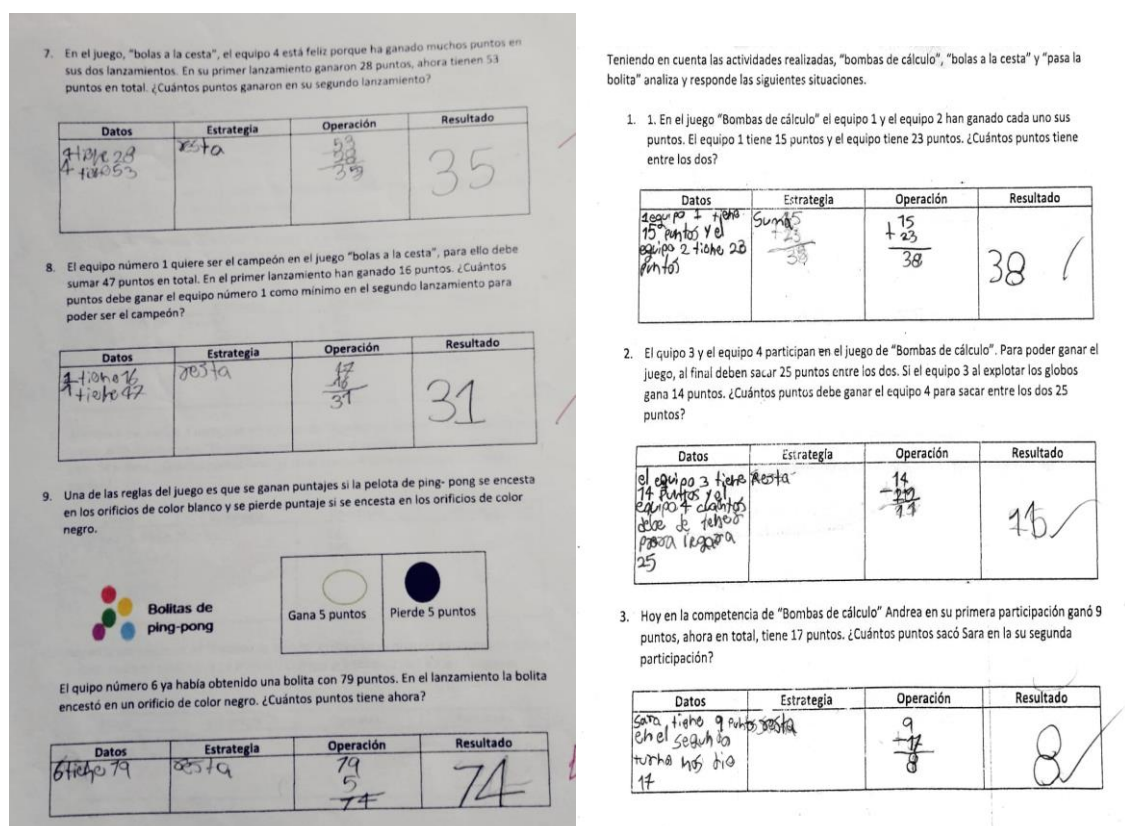 7. En el juego, "bolas a la cesta", el equipo 4 está feliz porque ha ganado muchos puntos en
sus dos lanzamientos. En su primer lanzamiento ganaron 28 puntos, ahora tienen 53
puntos en total. ¿Cuántos puntos ganaron en su segundo lanzamiento?
Datos Estrategia Operación Resultado
4 tiene 28 resta 53 35
4 tiene 53 28
35
8. El equipo número 1 quiere ser el campeón en el juego "bolas a la cesta", para ello debe
sumar 47 puntos en total. En el primer lanzamiento han ganado 16 puntos. ¿Cuántos
puntos debe ganar el equipo número 1 como mínimo en el segundo lanzamiento para
poder ser el campeón?
Datos Estrategia Operación Resultado
1 tiene 16 resta 47 31
1 tiene 47 16
31
9. Una de las reglas del juego es que se ganan puntajes si la pelota de ping- pong se encesta
en los orificios de color blanco y se pierde puntaje si se encesta en los orificios de color
negro.
Bolitas de
ping-pong
Gana 5 puntos Pierde 5 puntos
El quipo número 6 ya había obtenido una bolita con 79 puntos. En el lanzamiento la bolita
encestó en un orificio de color negro. ¿Cuántos puntos tiene ahora?
Datos Estrategia Operación Resultado
6 tiene 79 resta 79 74
5
74
Teniendo en cuenta las actividades realizadas, "bombas de cálculo", "bolas a la cesta" y "pasa la
bolita" analiza y responde las siguientes situaciones.
1. 1. En el juego "Bombas de cálculo" el equipo 1 y el equipo 2 han ganado cada uno sus
puntos. El equipo 1 tiene 15 puntos y el equipo tiene 23 puntos. ¿Cuántos puntos tiene
entre los dos?
Datos Estrategia Operación Resultado
equipo 1 tiene Suma 15 38
15 puntos y el + 23
equipo 2 tiene 23 38
puntos
2. El quipo 3 y el equipo 4 participan en el juego de "Bombas de cálculo". Para poder ganar el
juego, al final deben sacar 25 puntos entre los dos. Si el equipo 3 al explotar los globos
gana 14 puntos. ¿Cuántos puntos debe ganar el equipo 4 para sacar entre los dos 25
puntos?
Datos Estrategia Operación Resultado
el equipo 3 tiene Resta 14
14 puntos y el
equipo 4 cuantos 11
debe de tener
para llegar a
25
3. Hoy en la competencia de "Bombas de cálculo" Andrea en su primera participación ganó 9
puntos, ahora en total, tiene 17 puntos. ¿Cuántos puntos sacó Sara en la su segunda
participación?
Datos Estrategia Operación Resultado
Sara tiene 9 puntos resta 9 8
en el segundo 17
turno nos dio 8
17